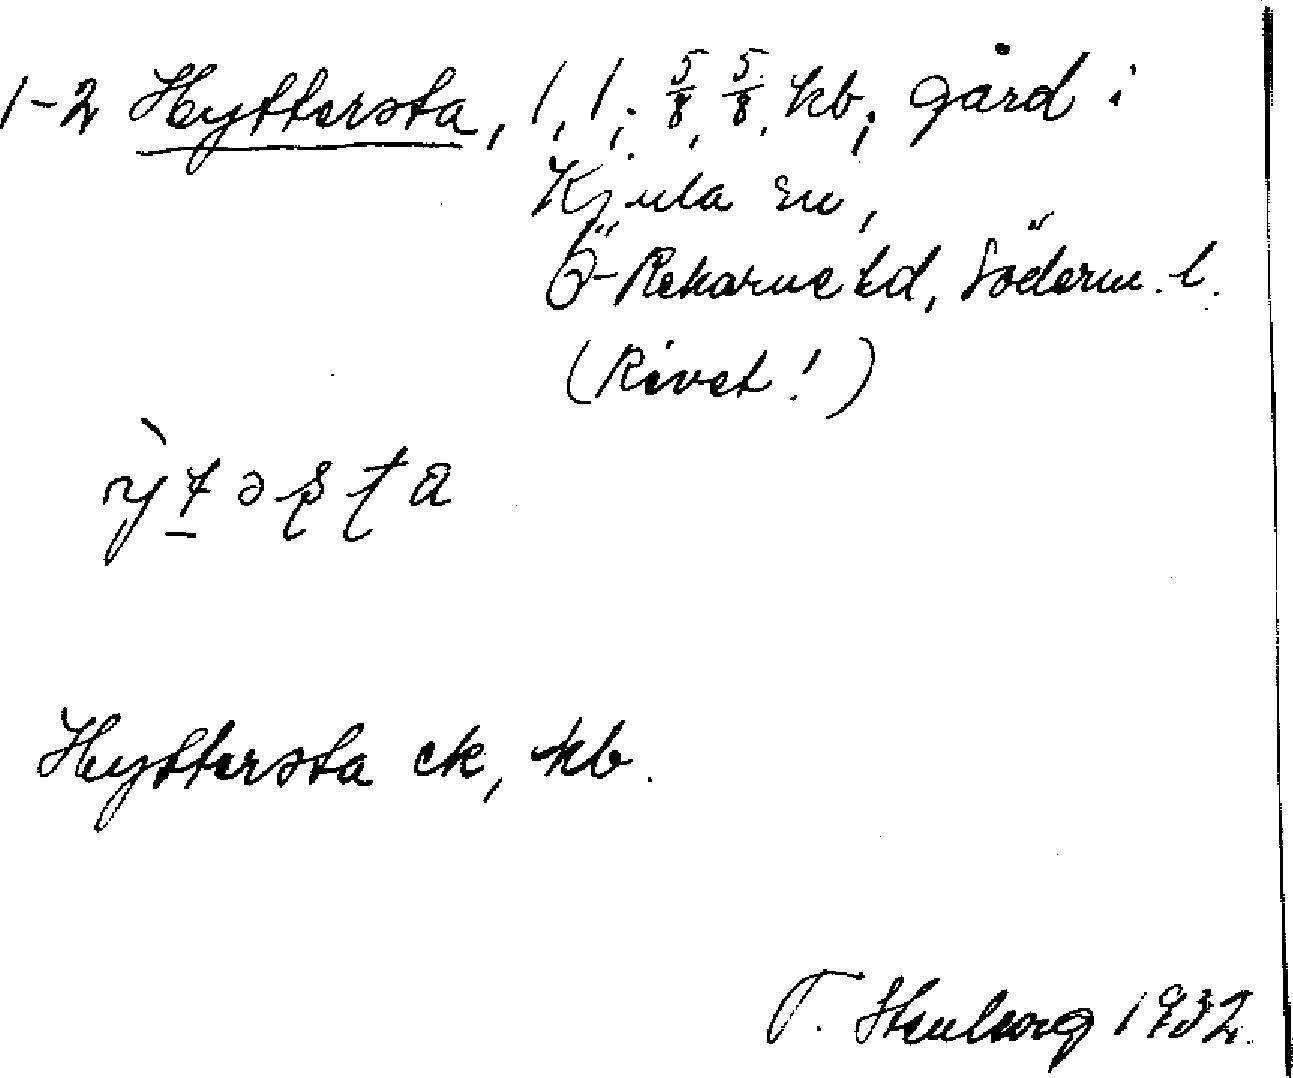 1-2 Hyttersta, 1, 1; 5/8, 5/8, kb; gård i
Kjula sn,
Ö-Rekarne hd, Söderm. l.
(Rivet!)
Hyttersta ek, kb.
T. Stenborg 1932.